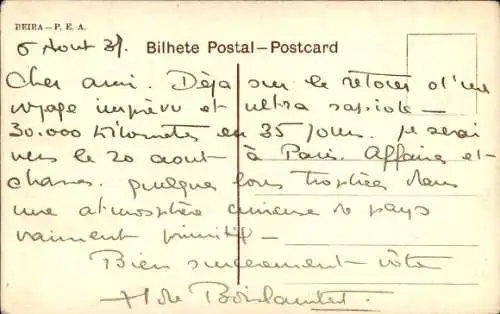 BEIRA—P. E. A.
6 Aout 37.
Bilhete Postal—Postcard
Cher ami. Déja sur le retour d'un
voyage imprévu et ultra rapide —
30.000 Kilometres en 35 jours. je serai
vers le 20 aout à Paris. Affaires et
chasses. quelques bons trophées dans
une atmosphère curieuse de pays
vraiment primitif —
Bien sincerement votre